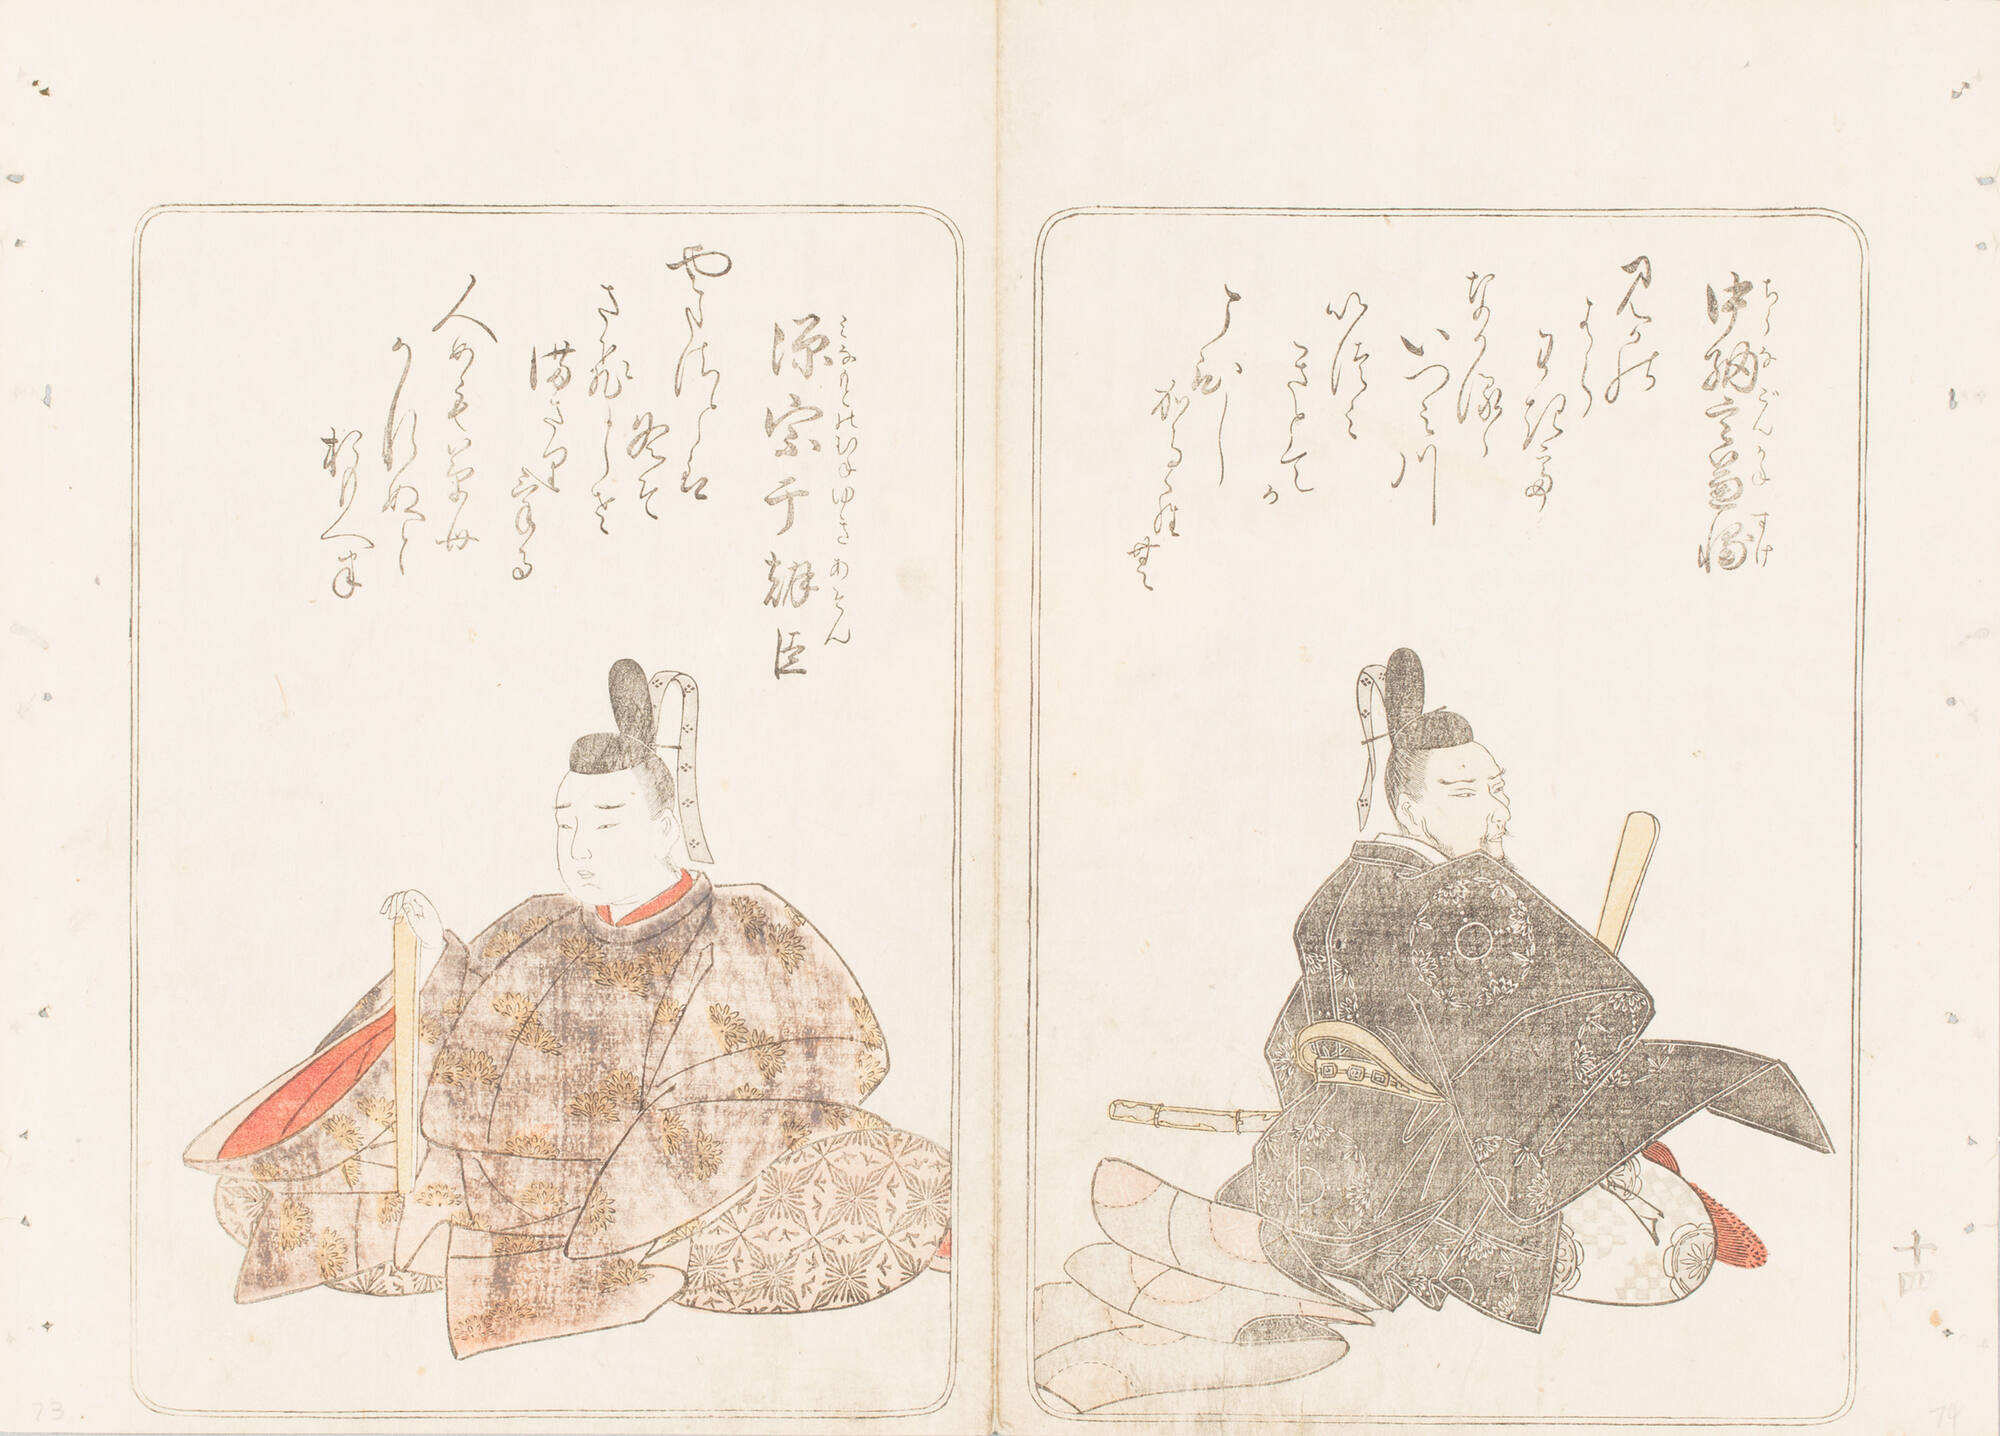 中納言兼輔
ちうなごんかねすけ
見かの
はら
わきて
なかるゝ
いつみ川
いつみ
きとてか
こひし
かるらむ
源宗于朝臣
みなもとのむねゆきあそん
やまさとは
冬そ
さひしさ
満さり
ける
人めも草も
かれぬと
おもへは
十四
73
74